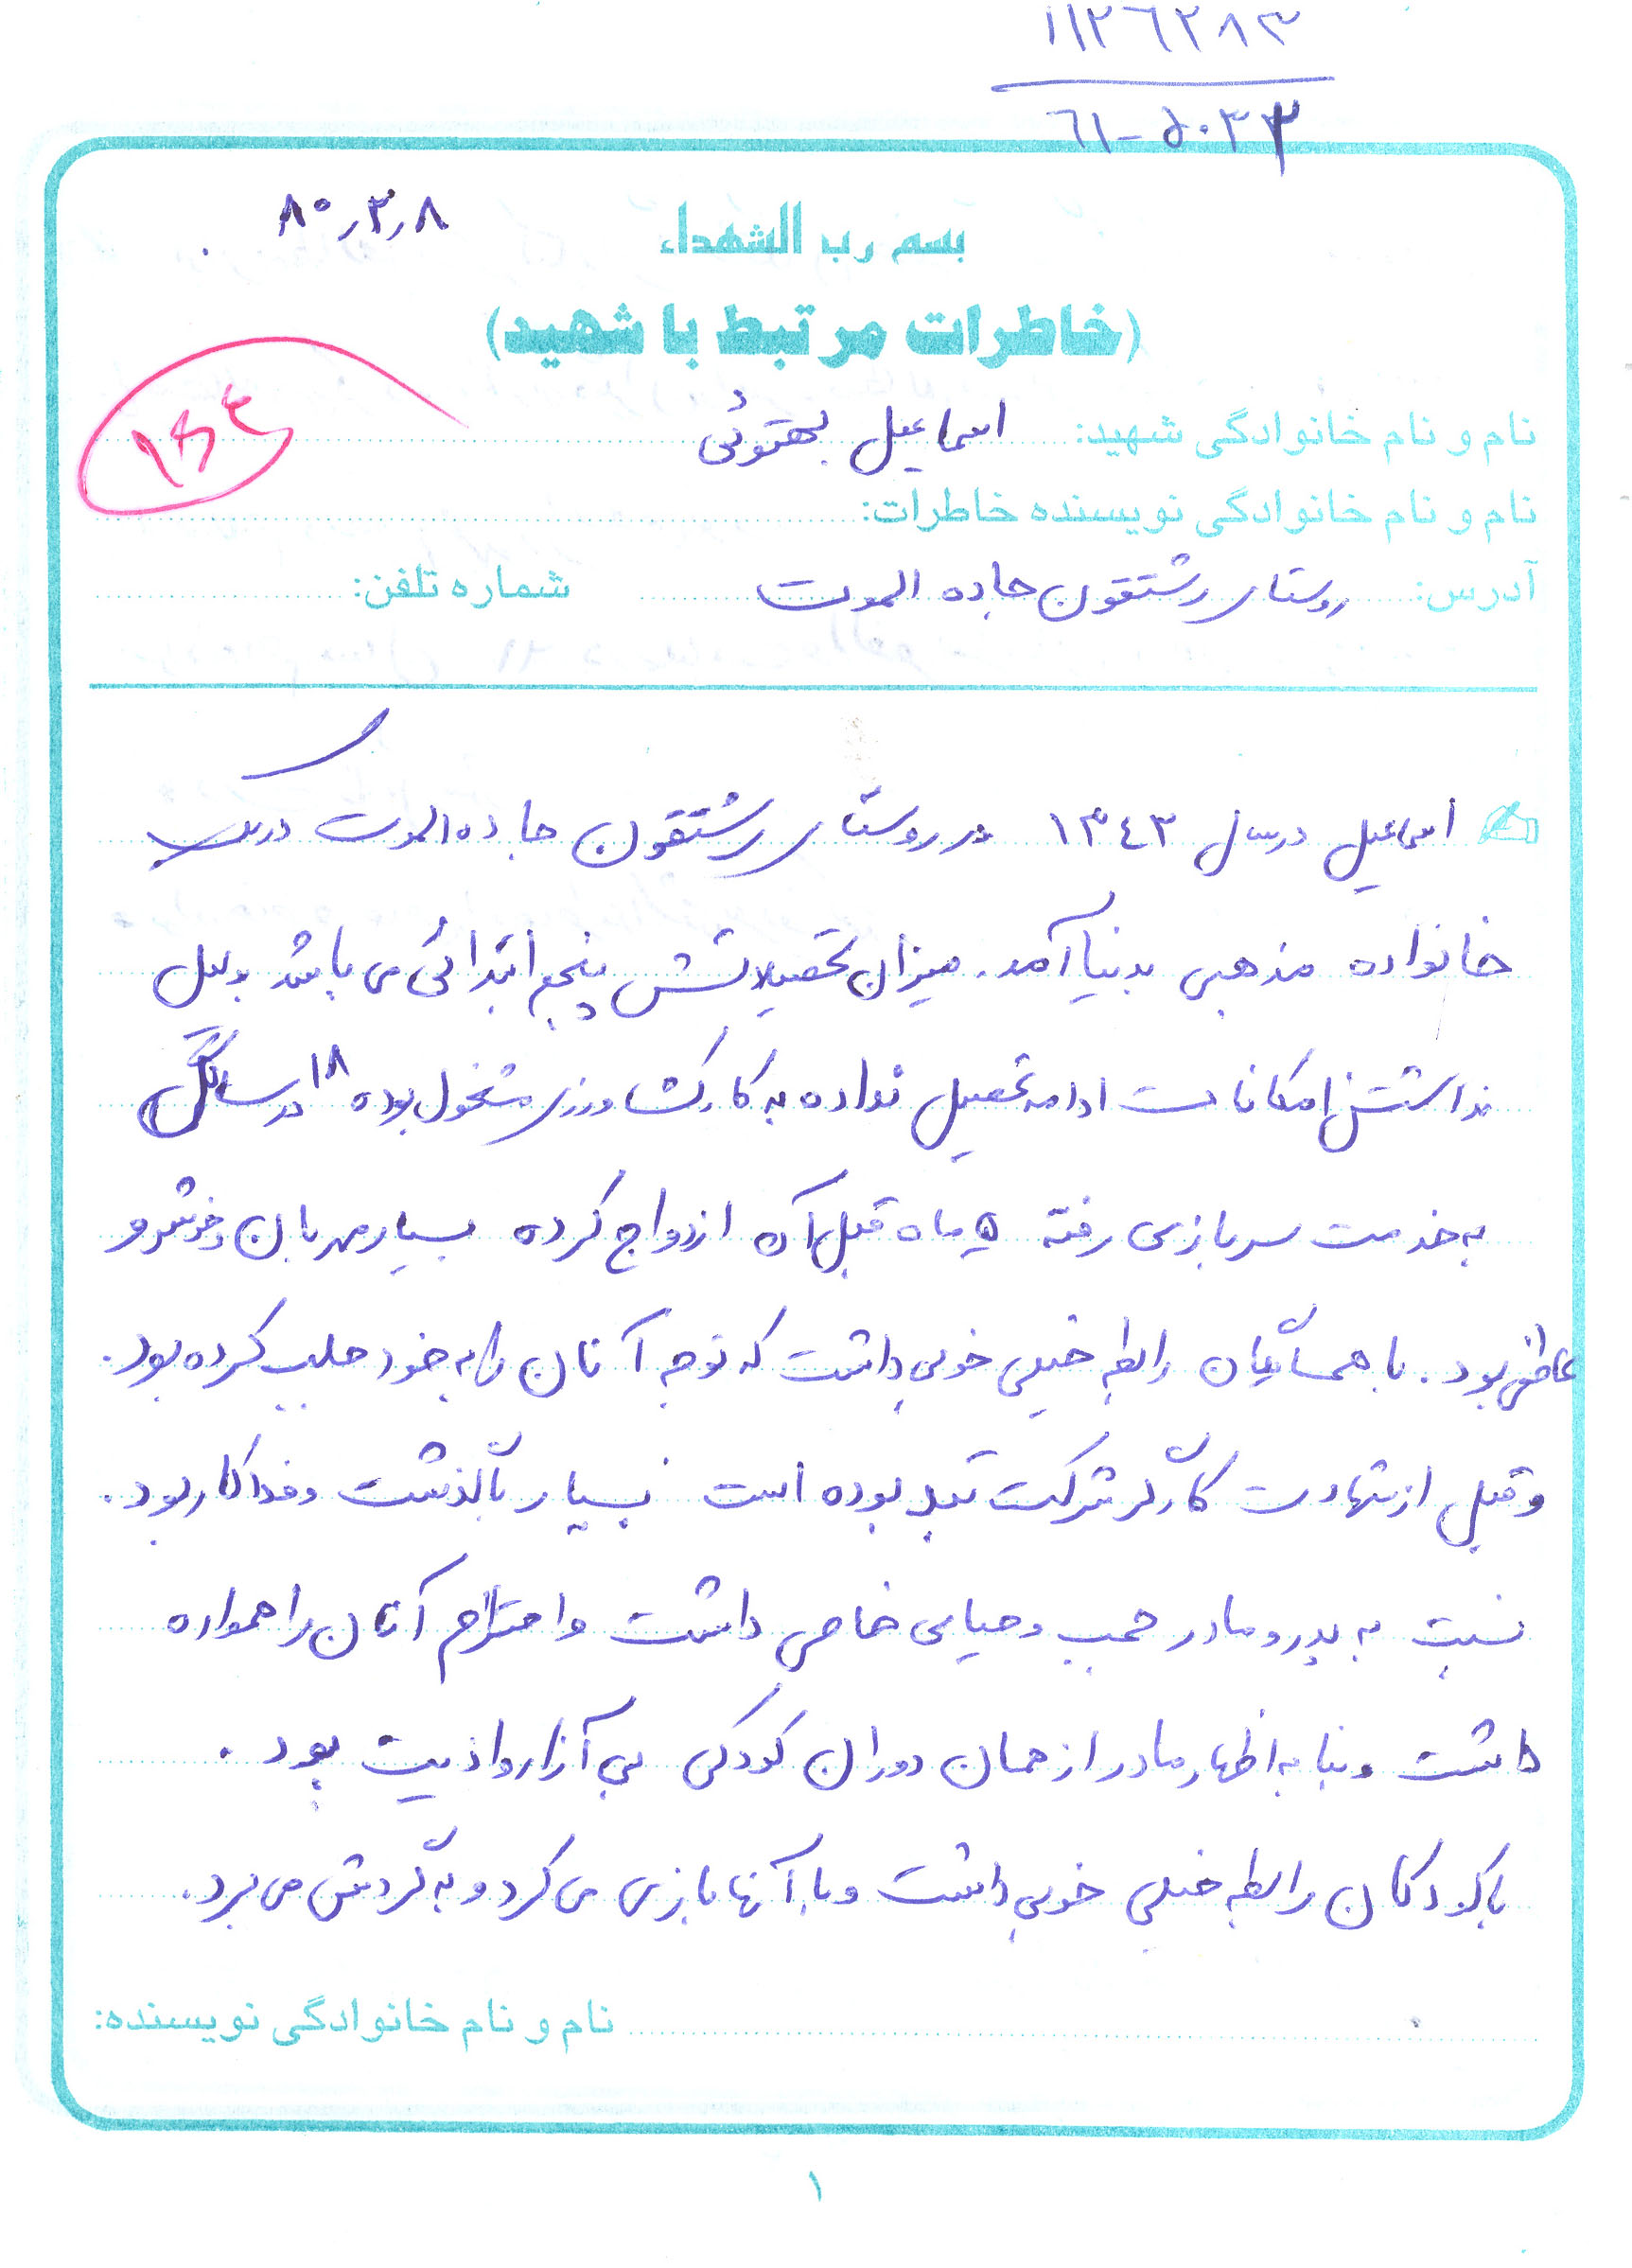 ۱۱۲۶۲۸۳
۶۱-۵۰۳۳
۸۰٫۳٫۸
بسم رب الشهداء
(خاطرات مرتبط با شهید)
۱۶۳
نام و نام خانوادگی شهید: اسماعیل بهتوئی
نام و نام خانوادگی نویسنده خاطرات:
آدرس: روستای رشتقون جاده الموت شماره تلفن:
اسماعیل درسال ۱۳۴۳ در روستای رشتقون جاده الموت دریک
خانواده مذهبی بدنیا آمد. میزان تحصیلاتش پنجم ابتدائی می باشد بدلیل
نداشتن امکانات ادامه تحصیل نداده به کار کشاورزی مشغول بوده در ۱۸ سالگی
به خدمت سربازی رفته ۵ ماه قبل آن ازدواج کرده بسیار مهربان و خوشرو
عاطفی بود. با همسایگان رابطه خیلی خوبی داشت که توجه آنان را به خود جلب کرده بود.
و قبل از شهادت کارگر شرکت بوده است بسیار باگذشت و فداکار بود.
نسبت به پدر و مادر حجب و حیایی خاصی داشت و احترام آنان را همواره
داشت و بنا به اظهار مادر از همان دوران کودکی بی آزار و اذیت بود.
با کودکان رابطه خیلی خوبی داشت و با آنها بازی می کرد و به گردش می برد.
نام و نام خانوادگی نویسنده:
۱